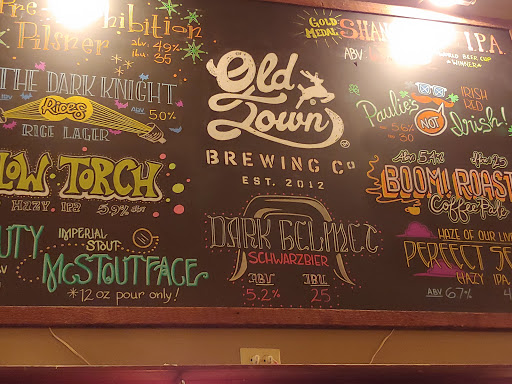 Pre-Prohibition
Pilsner
abv: 4.9%
ibu: 35
THE DARK KNIGHT
Rices
ABV 5.0%
RICE LAGER
LOW TORCH
HAZY IPA 5.9% abv
UTY
IMPERIAL
STOUT
McSTOUTFACE
*12 oz pour only!
Old
Town
BREWING CO
EST. 2012
DARK HELMET
SCHWARZBIER
ABV IBU
5.2% 25
GOLD
MEDAL
I.P.A.
ABV
WORLD BEER CUP
WINNER
IRISH
RED
Paulie's
NOT
Irish!
5.6%
30
BOOM! ROAST
Coffee Pale
HAZE OF OUR LIV
PERFECT S
HAZY IPA
ABV 6.7%